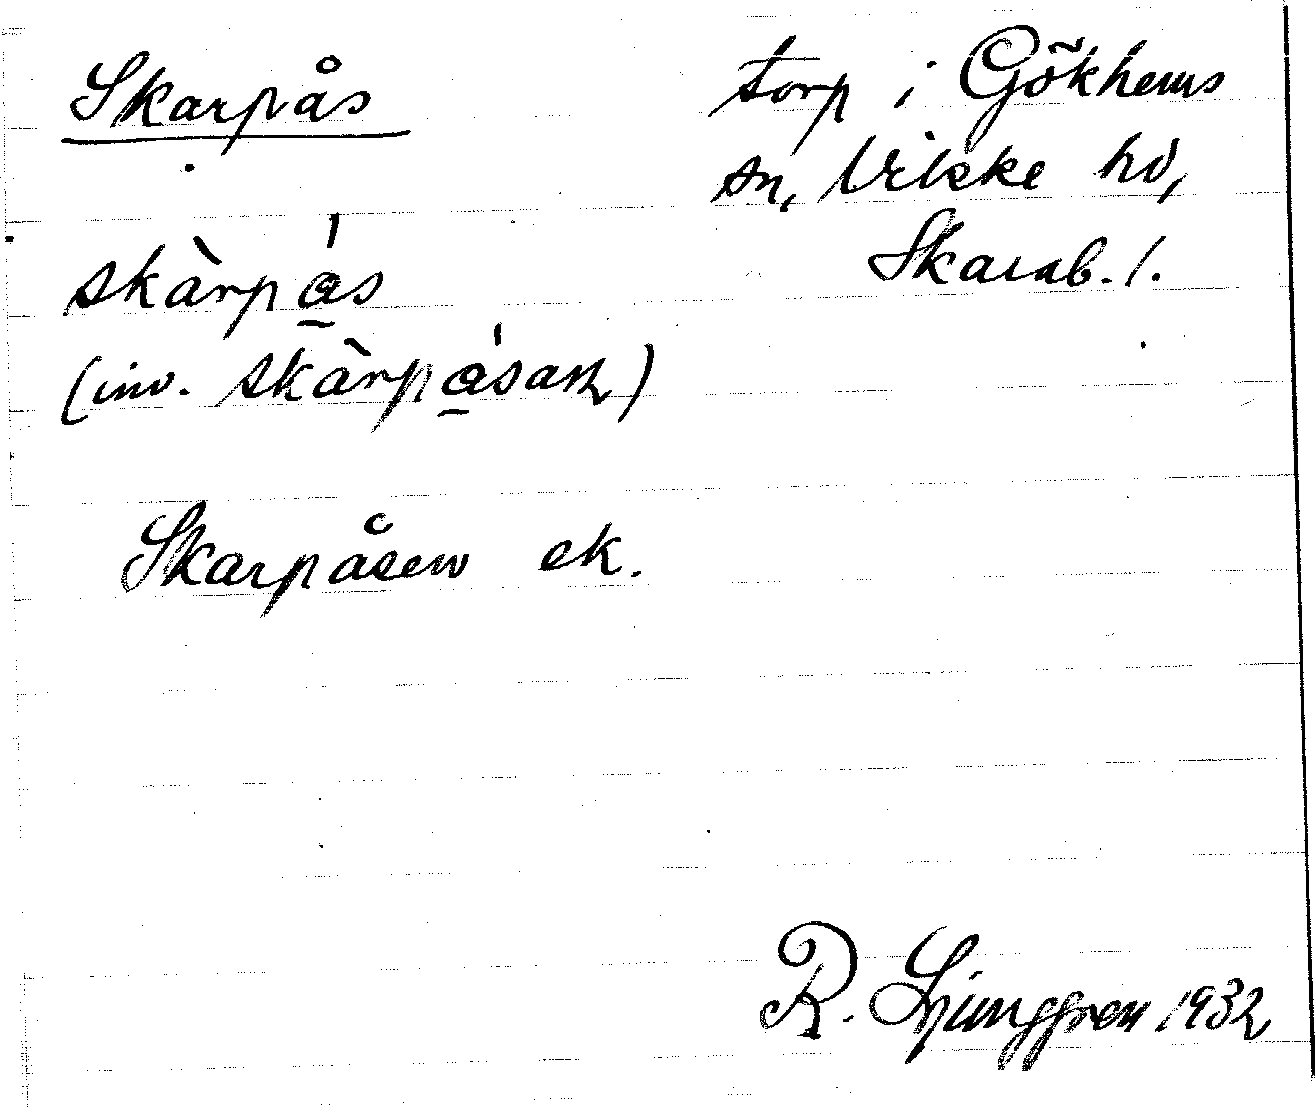 Skarpås
torp i Gökhems
sn, Vilske hd,
Skarab. l.
skàrpås
(inv. skàrpåsaɹ)
Skarpåsen ek.
R. Ljunggren 1932